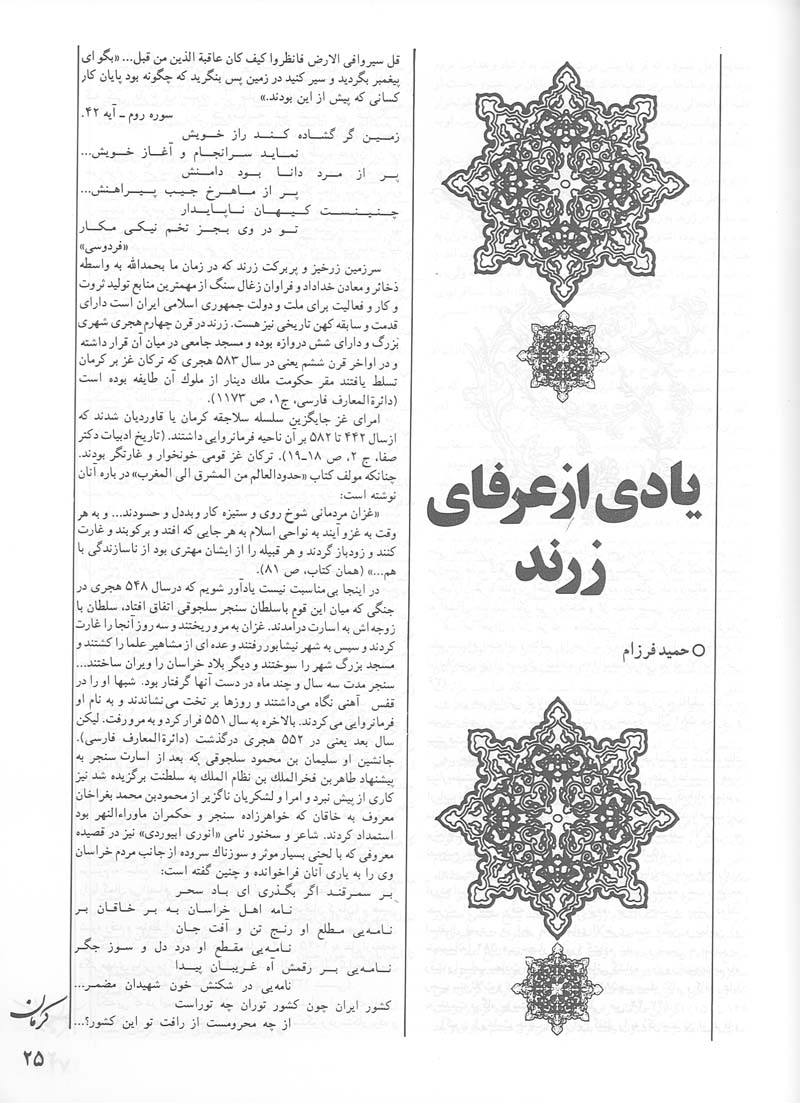 یادی از عرفای
زرند
حمید فرزام
قل سیروافی الارض فانظروا کیف کان عاقبة الذین من قبل... «بگو ای
پیغمبر بگردید و سیر کنید در زمین پس بنگرید که چگونه بود پایان کار
کسانی که پیش از این بودند.»
سوره روم ـ آیه ۴۲.
زمـیـن گر گشاده کـنـد راز خـویش
نماید سـرانجام و آغـاز خـویش...
پـر از مـرد دانـا بـود دامـنش
پـر از مـاهـرخ جیـب پیـراهـنش...
چـنـیـنـست کـیـهـان نـاپـایـدار
تـو در وی بـجـز تخم نیـکـی مـکـار
«فردوسی»
سرزمین زرخیز و پربرکت زرند که در زمان ما بحمدالله به واسطه
ذخائر و معادن خداداد و فراوان زغال سنگ از مهمترین منابع تولید ثروت
و کار و فعالیت برای ملت و دولت جمهوری اسلامی ایران است دارای
قدمت و سابقه کهن تاریخی نیز هست. زرند در قرن چهارم هجری شهری
بزرگ و دارای شش دروازه بوده و مسجد جامعی در میان آن قرار داشته
و در اواخر قرن ششم یعنی در سال ۵۸۳ هجری که ترکان غز بر کرمان
تسلط یافتند مقر حکومت ملك دینار از ملوك آن طایفه بوده است
(دائرةالمعارف فارسی، ج۱، ص ۱۱۷۳).
امرای غز جایگزین سلسله سلاجقه کرمان یا قاوردیان شدند که
ازسال ۴۴۲ تا ۵۸۲ بر آن ناحیه فرمانروایی داشتند. (تاریخ ادبیات دکتر
صفا، ج ۲، ص ۱۸ـ۱۹). ترکان غز قومی خونخوار و غارتگر بودند.
چنانکه مولف کتاب «حدودالعالم من المشرق الی المغرب» در باره آنان
نوشته است:
«غزان مردمانی شوخ روی و ستیزه کار وبددل و حسودند... و به هر
وقت به غزو آیند به نواحی اسلام به هر جایی که افتد و برکوبند و غارت
کنند و زودباز گردند و هر قبیله را از ایشان مهتری بود از ناسازندگی با
هم...» (همان کتاب، ص ۸۱).
در اینجا بی‌مناسبت نیست یادآور شویم که درسال ۵۴۸ هجری در
جنگی که میان این قوم باسلطان سنجر سلجوقی اتفاق افتاد، سلطان با
زوجه‌اش به اسارت درآمدند. غزان به مرو ریختند و سه روز آنجا را غارت
کردند و سپس به شهر نیشابور رفتند و عده ای از مشاهیر علما را کشتند و
مسجد بزرگ شهر را سوختند و دیگر بلاد خراسان را ویران ساختند...
سنجر مدت سه سال و چند ماه در دست آنها گرفتار بود. شبها او را در
قفس آهنی نگاه می‌داشتند و روزها بر تخت می‌نشاندند و به نام او
فرمانروایی می‌کردند. بالاخره به سال ۵۵۱ فرار کرد و به مرو رفت. لیکن
سال بعد یعنی در ۵۵۲ هجری درگذشت (دائرةالمعارف فارسی).
جانشین او سلیمان بن محمود سلجوقی که بعد از اسارت سنجر به
پیشنهاد طاهربن فخرالملك بن نظام الملك به سلطنت برگزیده شد نیز
کاری از پیش نبرد و امرا و لشکریان ناگزیر از محمودبن محمد بغراخان
معروف به خاقان که خواهرزاده سنجر و حکمران ماوراءالنهر بود
استمداد کردند. شاعر و سخنور نامی «انوری ابیوردی» نیز در قصیده
معروفی که با لحنی بسیار موثر و سوزناك سروده از جانب مردم خراسان
وی را به یاری آنان فراخوانده و چنین گفته است:
بـر سـمـرقند اگر بـگـذری ای باد سحـر
نامه اهـل خراسان به بـر خـاقـان بر
نـامـه‌یی مـطلع او رنـج تن و آفت جـان
نـامـه‌یی مقـطع او درد دل و سـوز جگـر
نـامـه‌یی بـر رقمش آه غـریبـان پیدا
نامه‌یی در شکنش خون شهیدان مضمـر...
کشور ایران چون کشور توران چه توراست
از چه محرومست از رافت تو این کشور؟...
کرمان
۲۵